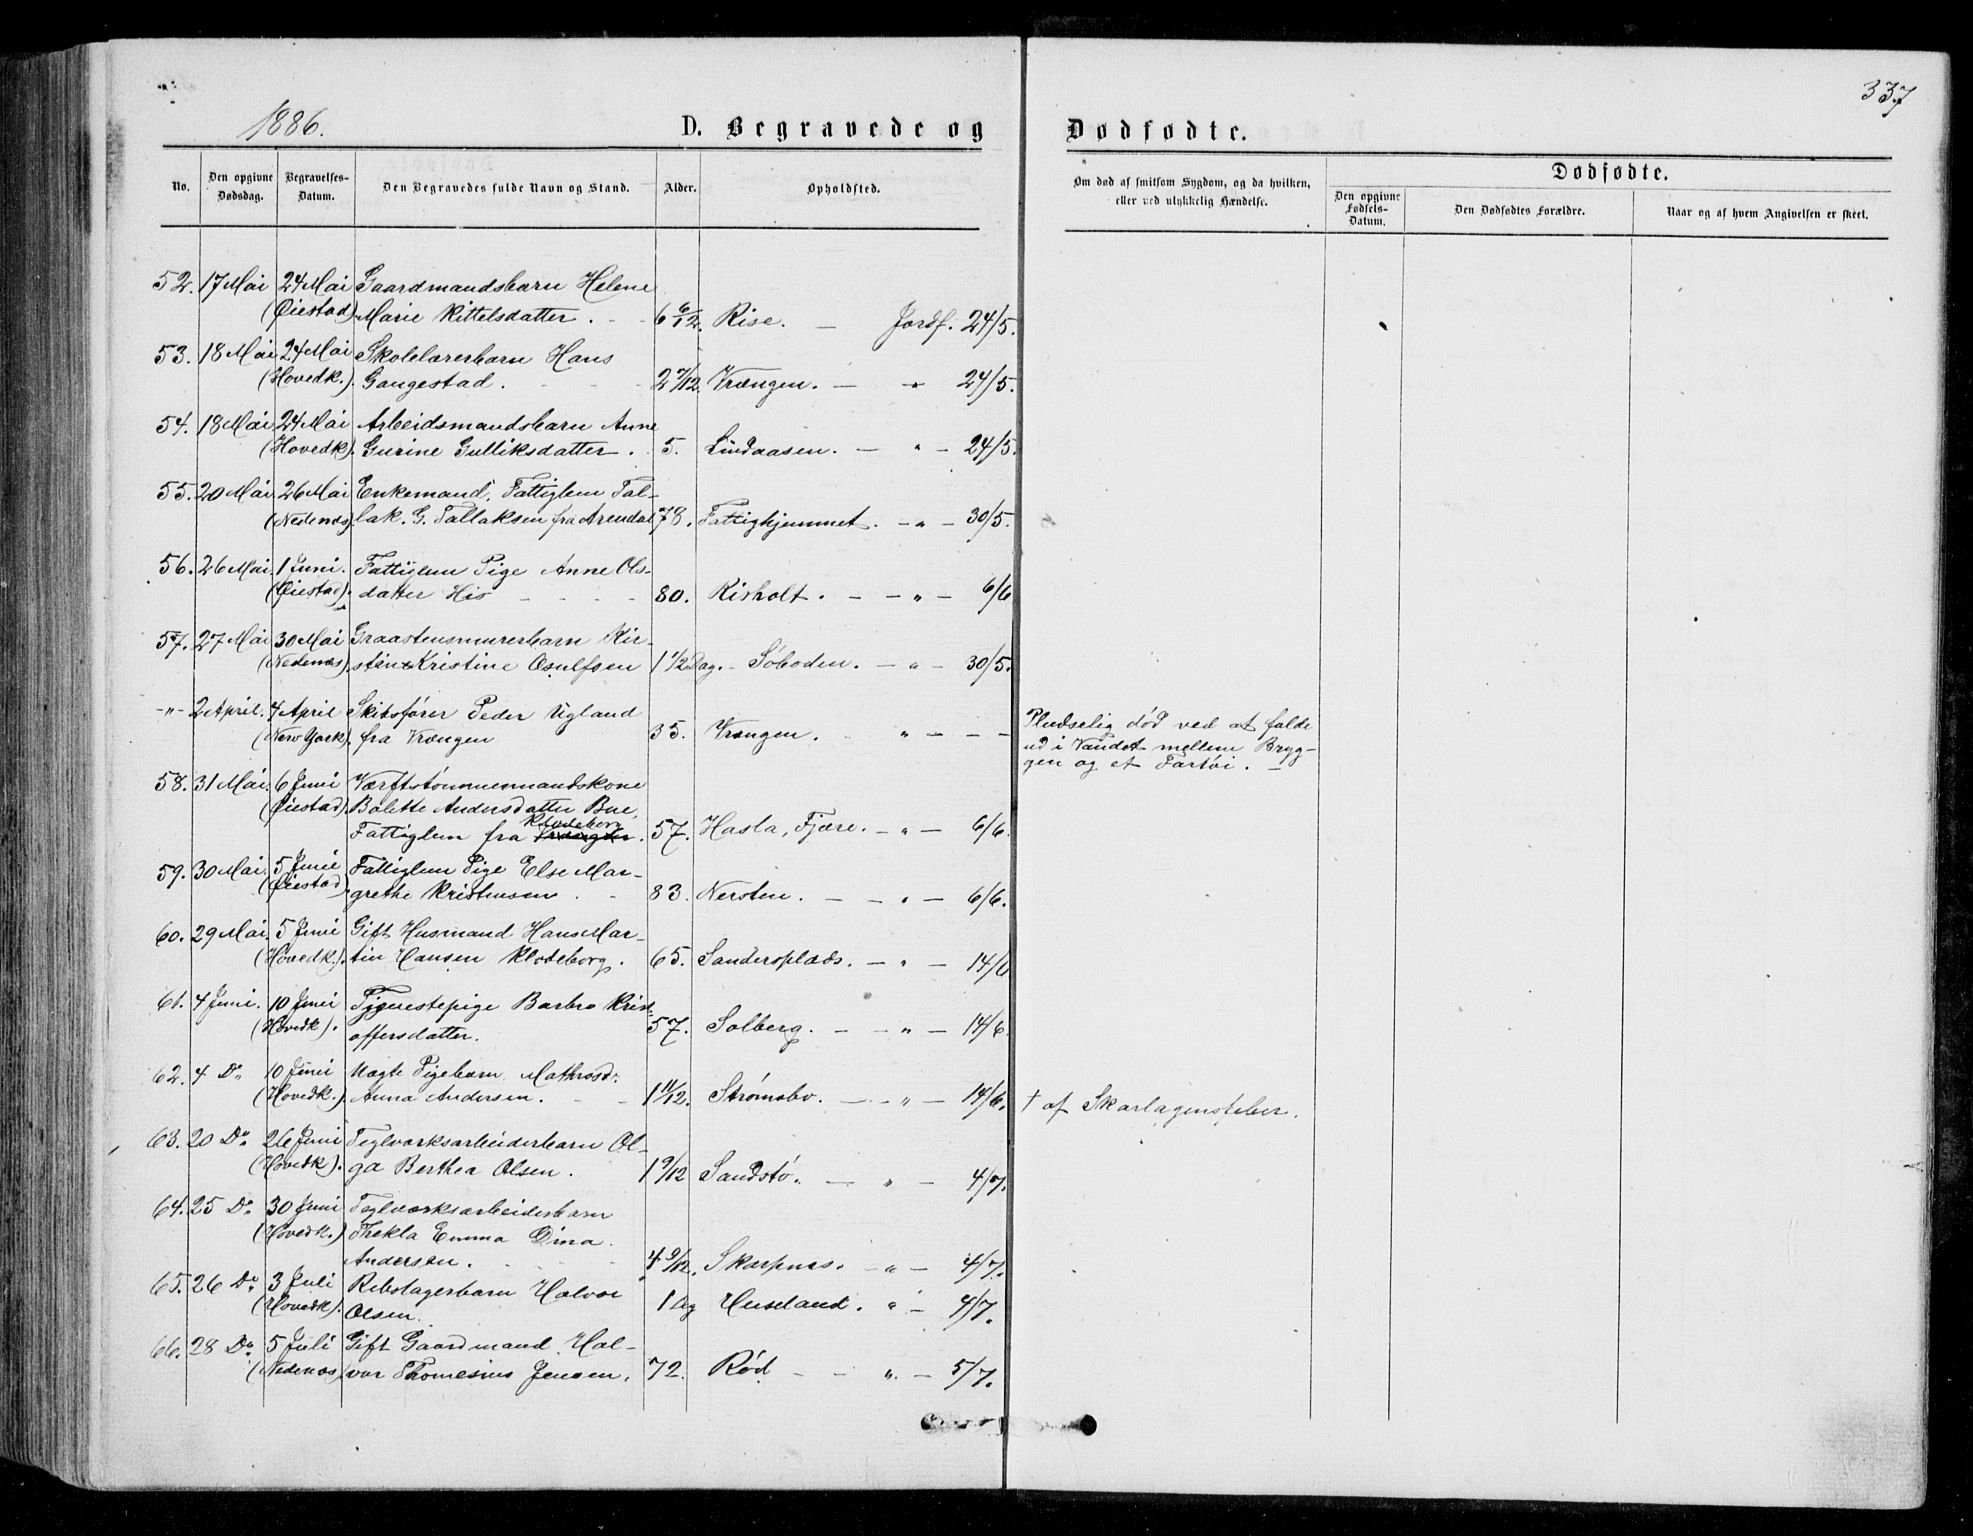 337
1886.
D. Begravede og Dødfødte.
No.
Den opgivne Dødsdag.
Begravelses-Datum.
Den Begravedes fulde Navn og Stand.
Alder.
Opholdsted.
Om død af smitsom Sygdom, og da hvilken, eller ved ulykkelig Hændelse.
Dødfødte.
Den opgivne Fødsels-Datum.
Den Dødfødtes Forældre.
Naar og af hvem Angivelsen er skeet.
52. 17 Mai 24 Mai Gaardmandsbarn Helene
(Øiestad) Marie Kittelsdatter. 6 6/12. Rise. — Jordf. 24/5.
53. 18 Mai 24 Mai Skolelærerbarn Hans
(Hovedk.). Gangestad. 2 7/12. Vrængen. — " 24/5.
54. 18 Mai 24 Mai Arbeidsmandsbarn Anne
(Hovedk). Gurine Gulliksdatter. 5. Lindaasen. — " — 24/5.
55. 20 Mai 26 Mai Enkemand, Fattiglem Tal-
(Nedenæs). lak. G. Tallaksen fra Arendal 78. Fattighjemmet. — " — 30/5.
56. 26 Mai. 1 Juni. Fattiglem Pige Anne Ols-
(Øiestad). datter His — 80. Risholt. — — " — 6/6
57. 27 Mai 30 Mai Graastensmurerbarn Kir-
(Nedenæs). stine Kristine Osulfsen 1 1/2 Dag. — Søboden. — " — 30/5.
—"— 2 April. 4 April Skibsfører Peder Ugland
(New York). fra Vrængen 35. Vrængen. " — — —
Pludselig død ved at falde
ud i Vandet mellem Bryg-
gen og et Fartøi. —
58. 31 Mai. 6 Juni Værftstømmermandskone
(Øiestad). Bolette Andersdatter Bue,
Klodeborg
Fattiglem fra Vrængen. 57. Hasla, Fjære. — " — 6/6.
59. 30 Mai. 5 Juni Fattiglem Pige Else Mar-
(Øiestad) grethe Kristensen. 83. Nersten. — — " — 6/6.
60. 29 Mai. 5 Juni Gift Husmand Hans Mar-
(Hovedk.). tin Hansen Klodeborg. 65. Sandersplads. — " — 14/6
61. 4 Juni. 10 Juni Tjenestepige Barbro Krist-
(Hovedk). offersdatter. 57. Solberg. — — " — 14/6.
62. 4 Do 10 Juni Uægte Pigebarn. Mathrosd:
(Hovedk.) Anna Andersen. 1 11/12. Strømsbo. — — " — 14/6. † af Skarlagensfeber.
63. 20 Do 26 Juni Teglværksarbeiderbarn Ol-
(Hovedk). ga Berthea Olsen. 1 9/12 Sandstø. — " — 4/7.
64. 25 Do 30 Juni Teglværksarbeiderbarn
(Hovedk.) Thekla Emma Dina
Andersen. 4 9/12. Skarpnes. — " — 4/7.
65. 26 Do 3 Juli Rebslagerbarn Halvor
(Hovedk). Olsen. 1 Dg Huseland. " — 4/7.
66. 28 Do 5 Juli Gift Gaardmand. Hal-
(Nedenæs). vor Thomesius Jensen. 72. Rød — — " — 5/7.